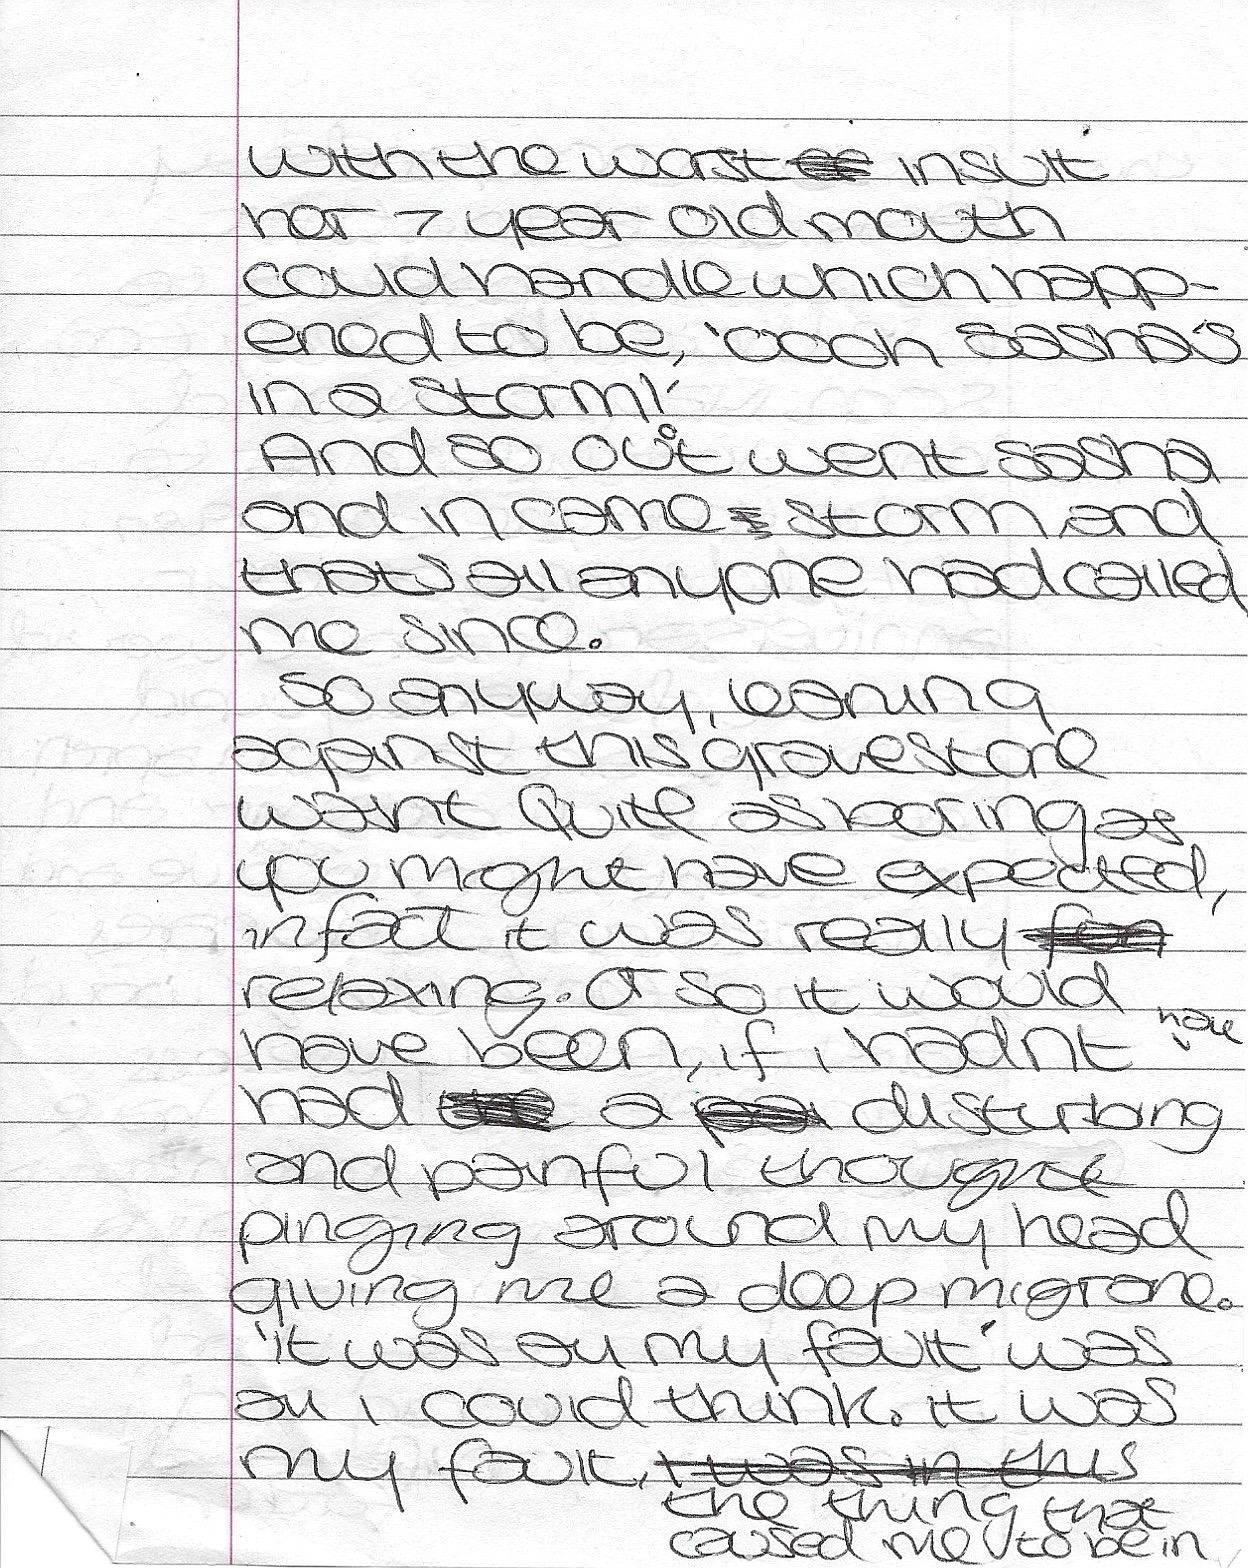 with the worst insult
her 7 year old mouth
could handle which happ-
ened to be, 'oooh Sasha's
in a storm!'
And so out went Sasha
and in came storm and
that's all anyone had called
me since.
So anyway, leaning
against this gravestone
wasnt Quite as boring as
you might have expected,
infact it was really fun
relaxing. Or so it would
have been, if i hadnt now
had a disturbing
and painful thought
pinging around my head
giving me a deep migrane.
'it was all my fault' was
all i could think. it was
my fault, i was in this
the thing that
caused me to be in